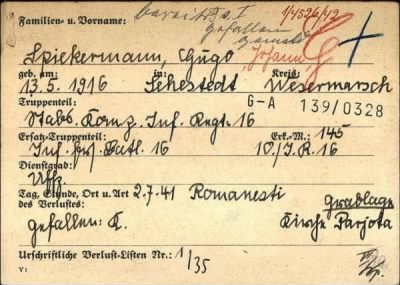 bereits a. I
gefallen
gemeldet
1/4526/42
Familien- u. Vorname:
Spiekermann, Hugo Johann G +
geb. am: in: Kreis:
13.5.1916 Sehestedt Wesermarsch
Truppenteil: G-A 139/0328
Stabs Komp. Inf. Regt. 16
Ersatz-Truppenteil: Erk.-M.: 145
Inf. Ers. Batl. 16 10./I.R. 16
Dienstgrad:
Uffz.
Tag, Stunde, Ort u. Art 2.7.41 Romanesti
des Verlustes: Grablage
gefallen: K. Kirche Parjota
Urschriftliche Verlust-Listen Nr.: 1/35
V: